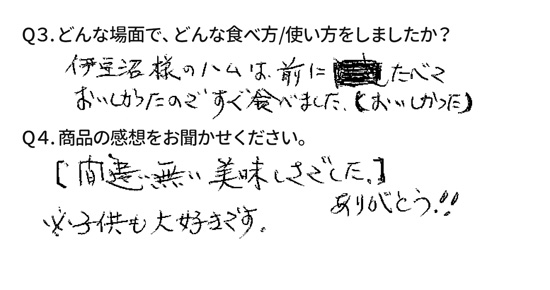 Q3.どんな場面で、どんな食べ方/使い方をしましたか？
伊豆沼様のハムは、前に たべて
おいしかったのですぐ食べました。(おいしかった)
Q4.商品の感想をお聞かせください。
[間違い無い美味しさでした。]
ありがとう!!
子供も大好きです。